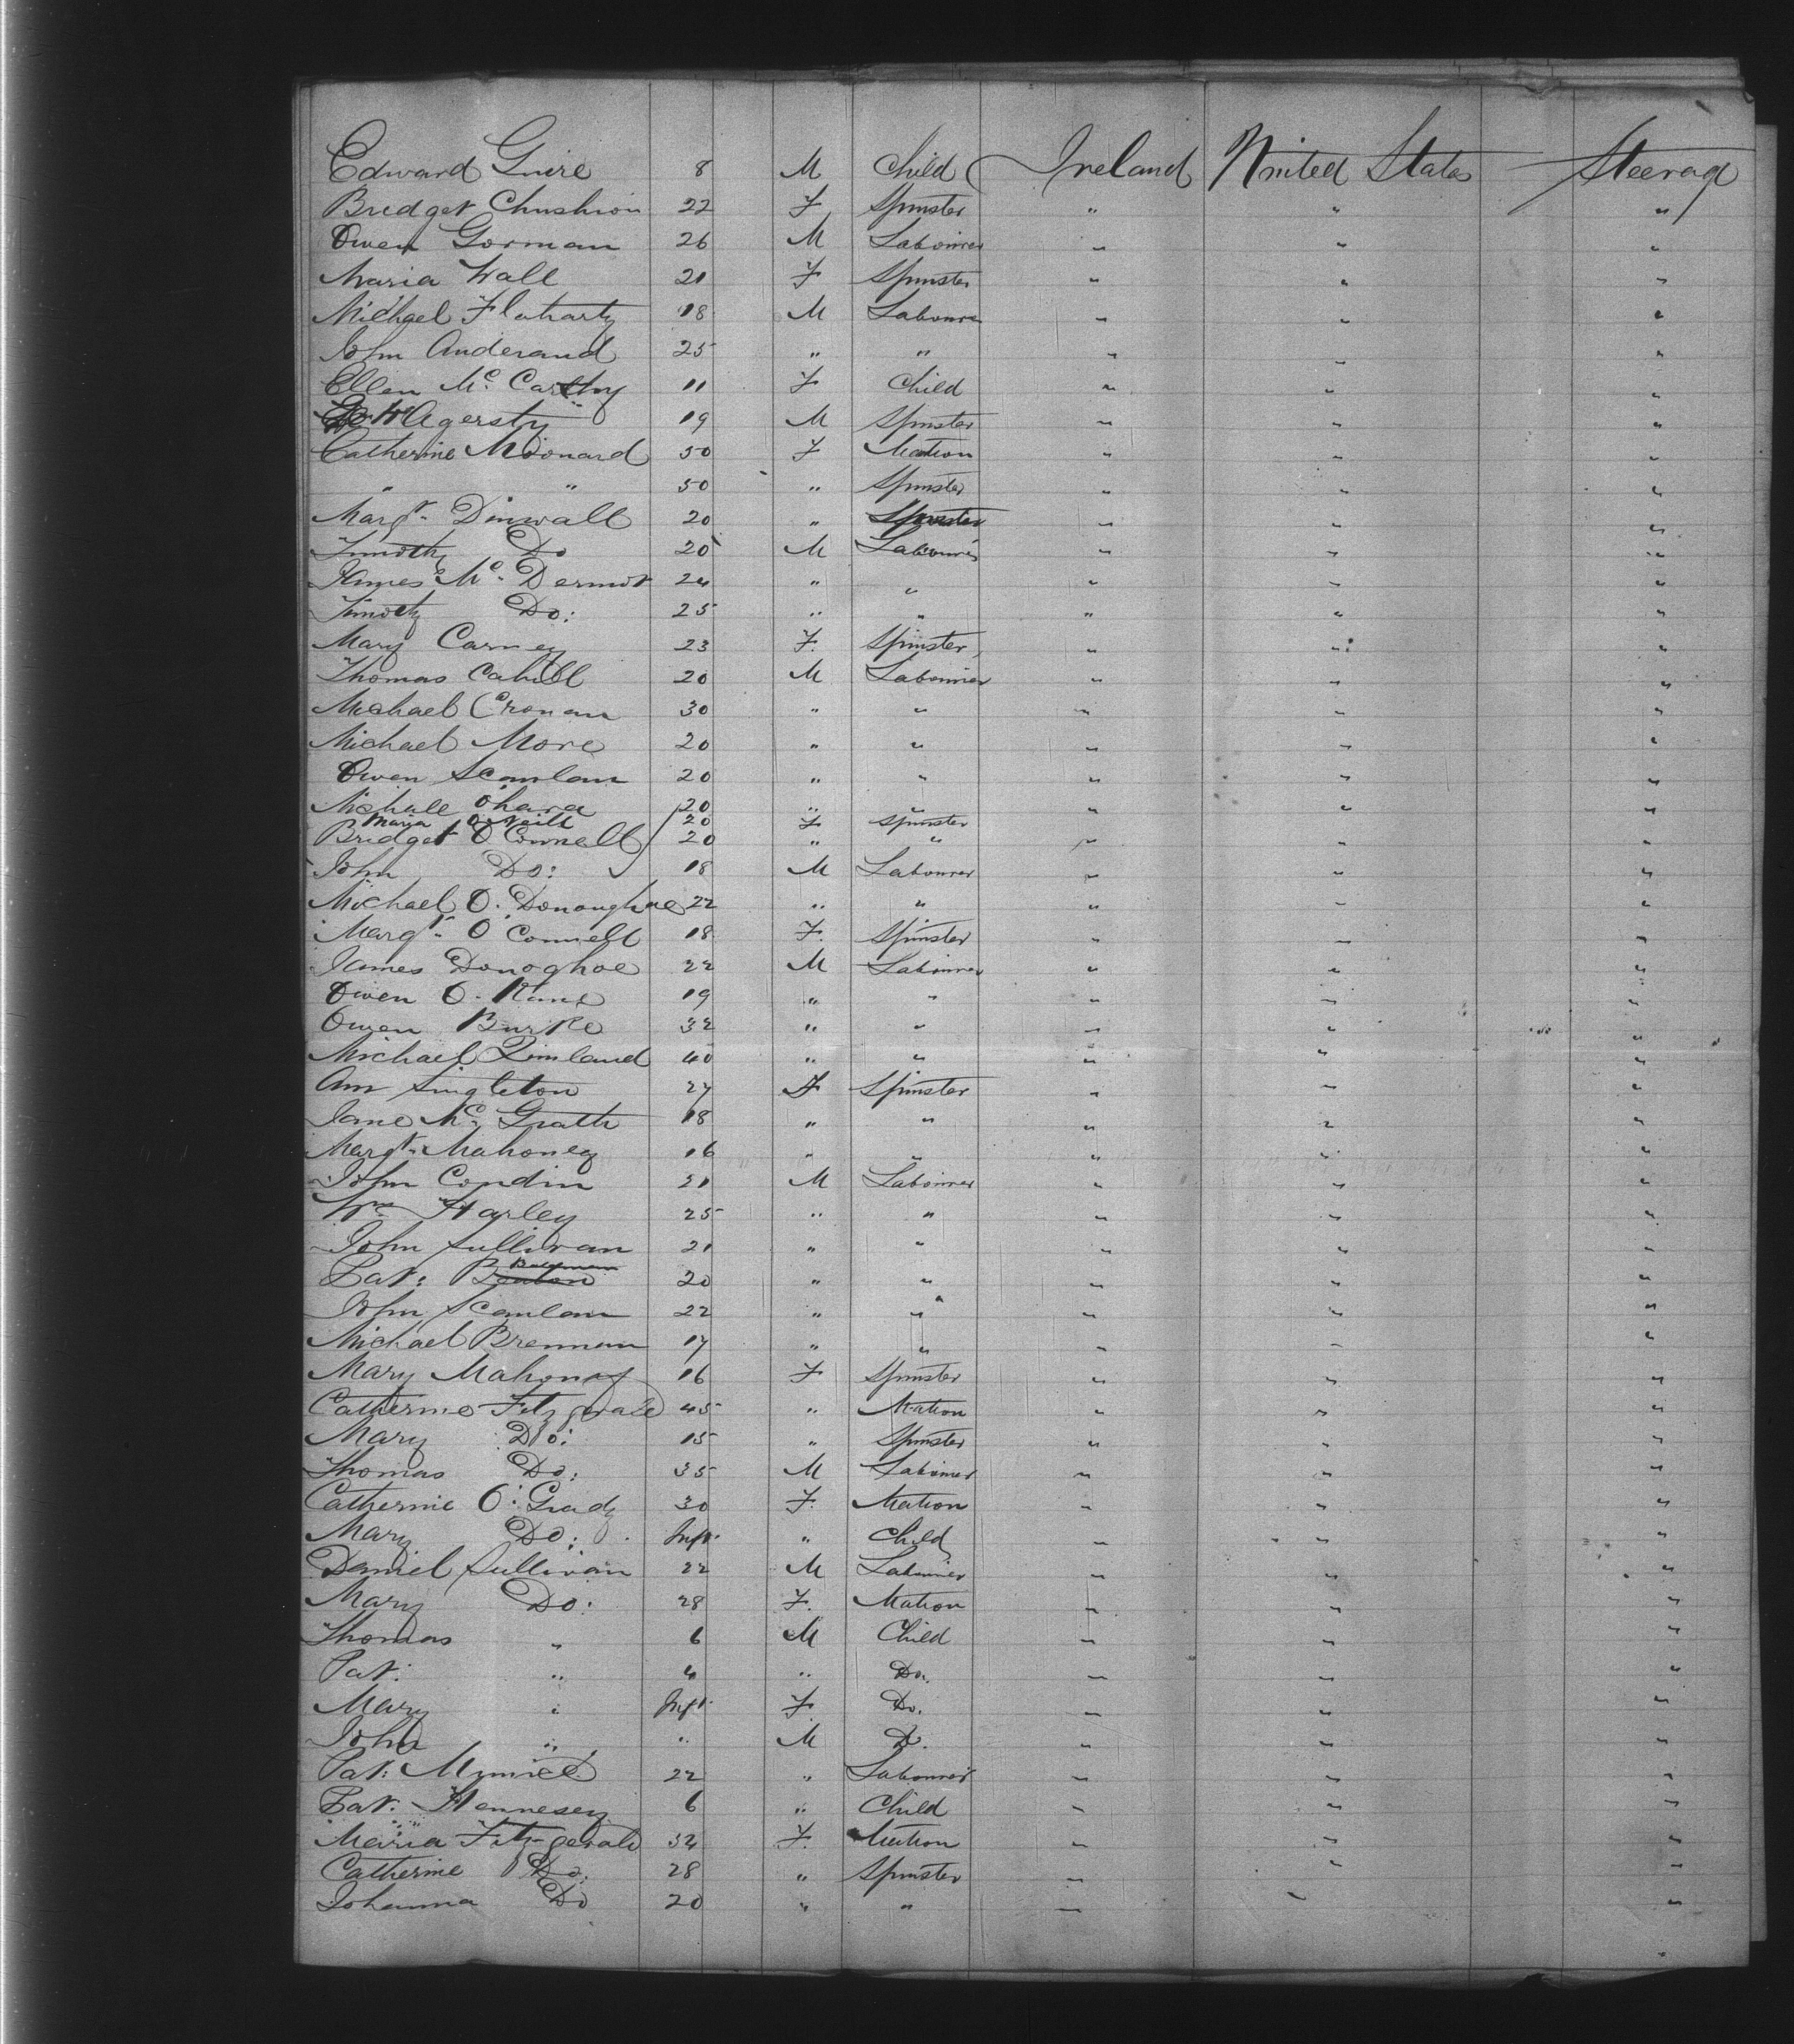 Edward Guire 8 M Child Ireland United States Steerag
Bridget Chushion 22 F Spinster " " "
Owen Gorman 26 M Labourer " " "
Maria Wall 21 F Spinster " " "
Michael Flaharty 18 M Labourer " " "
John Anderand 25 " " " " "
Ellen Mc Carthy 11 F Child " " "
Agersty 19 M Spinster " " "
Catherine 50 F Matron " " "
" " 50 " Spinster " " "
Margt. Dinwall 20 " Spinster " " "
Timothy Do 20 M Labourer " " "
James Mc Dermot 24 " " " " "
Timothy Do: 25 " " " " "
Mary Carney 23 F. Spinster " " "
Thomas Cahill 20 M Labourer " " "
Michael Cronan 30 " " " " "
Michael More 20 " " " " "
Owen Scanlan 20 " " " " "
Michale O'hara 20 " " " " "
Maria O Neill 20 F Spinster
Bridget O Connell 20 " " " " "
John Do: 18 M Labourer " " "
Michael O. Donoughue 22 " " " " "
Margt. O Connell 18 F. Spinster " " "
James Donoghoe 22 M Labourer " " "
Owen O. Kane 19 " " " " "
Owen Burke 32 " " " " "
Michael Rimland 40 " " " " "
Ann Singleton 27 F Spinster " " "
Jane Mc. Grath 18 " " " " "
Margt. Mahoney 16 " " " " "
John Condin 21 M Labourer " " "
Wm Harley 25 " " " " "
John Sullivan 21 " " " " "
Pat: 20 " " " " "
John Scanlan 22 " " " " "
Michael Brennan 17 " " " " "
Mary Mahony 16 F Spinster " " "
Catherine Fitzgerald 45 " Matron " " "
Mary Do: 15 " Spinster " " "
Thomas Do: 35 M Labourer " " "
Catherine O. Grady 30 F. Matron " " "
Mary Do: Inft. " Child " " "
Daniel Sullivan 22 M Labourer " " "
Mary Do: 28 F. Matron " " "
Thomas " 6 M Child " " "
Pat: " 4 " Do. " " "
Mary " Inft. F Do. " " "
John " " M D. " " "
Pat: 22 " Labourer " " "
Pat. Hennesey 6 " Child " " "
Maria Fitz-gerald 32 F. Matron " " "
Catherine Do. 28 " Spinster " " "
Johanna Do 20 " " " " "
"